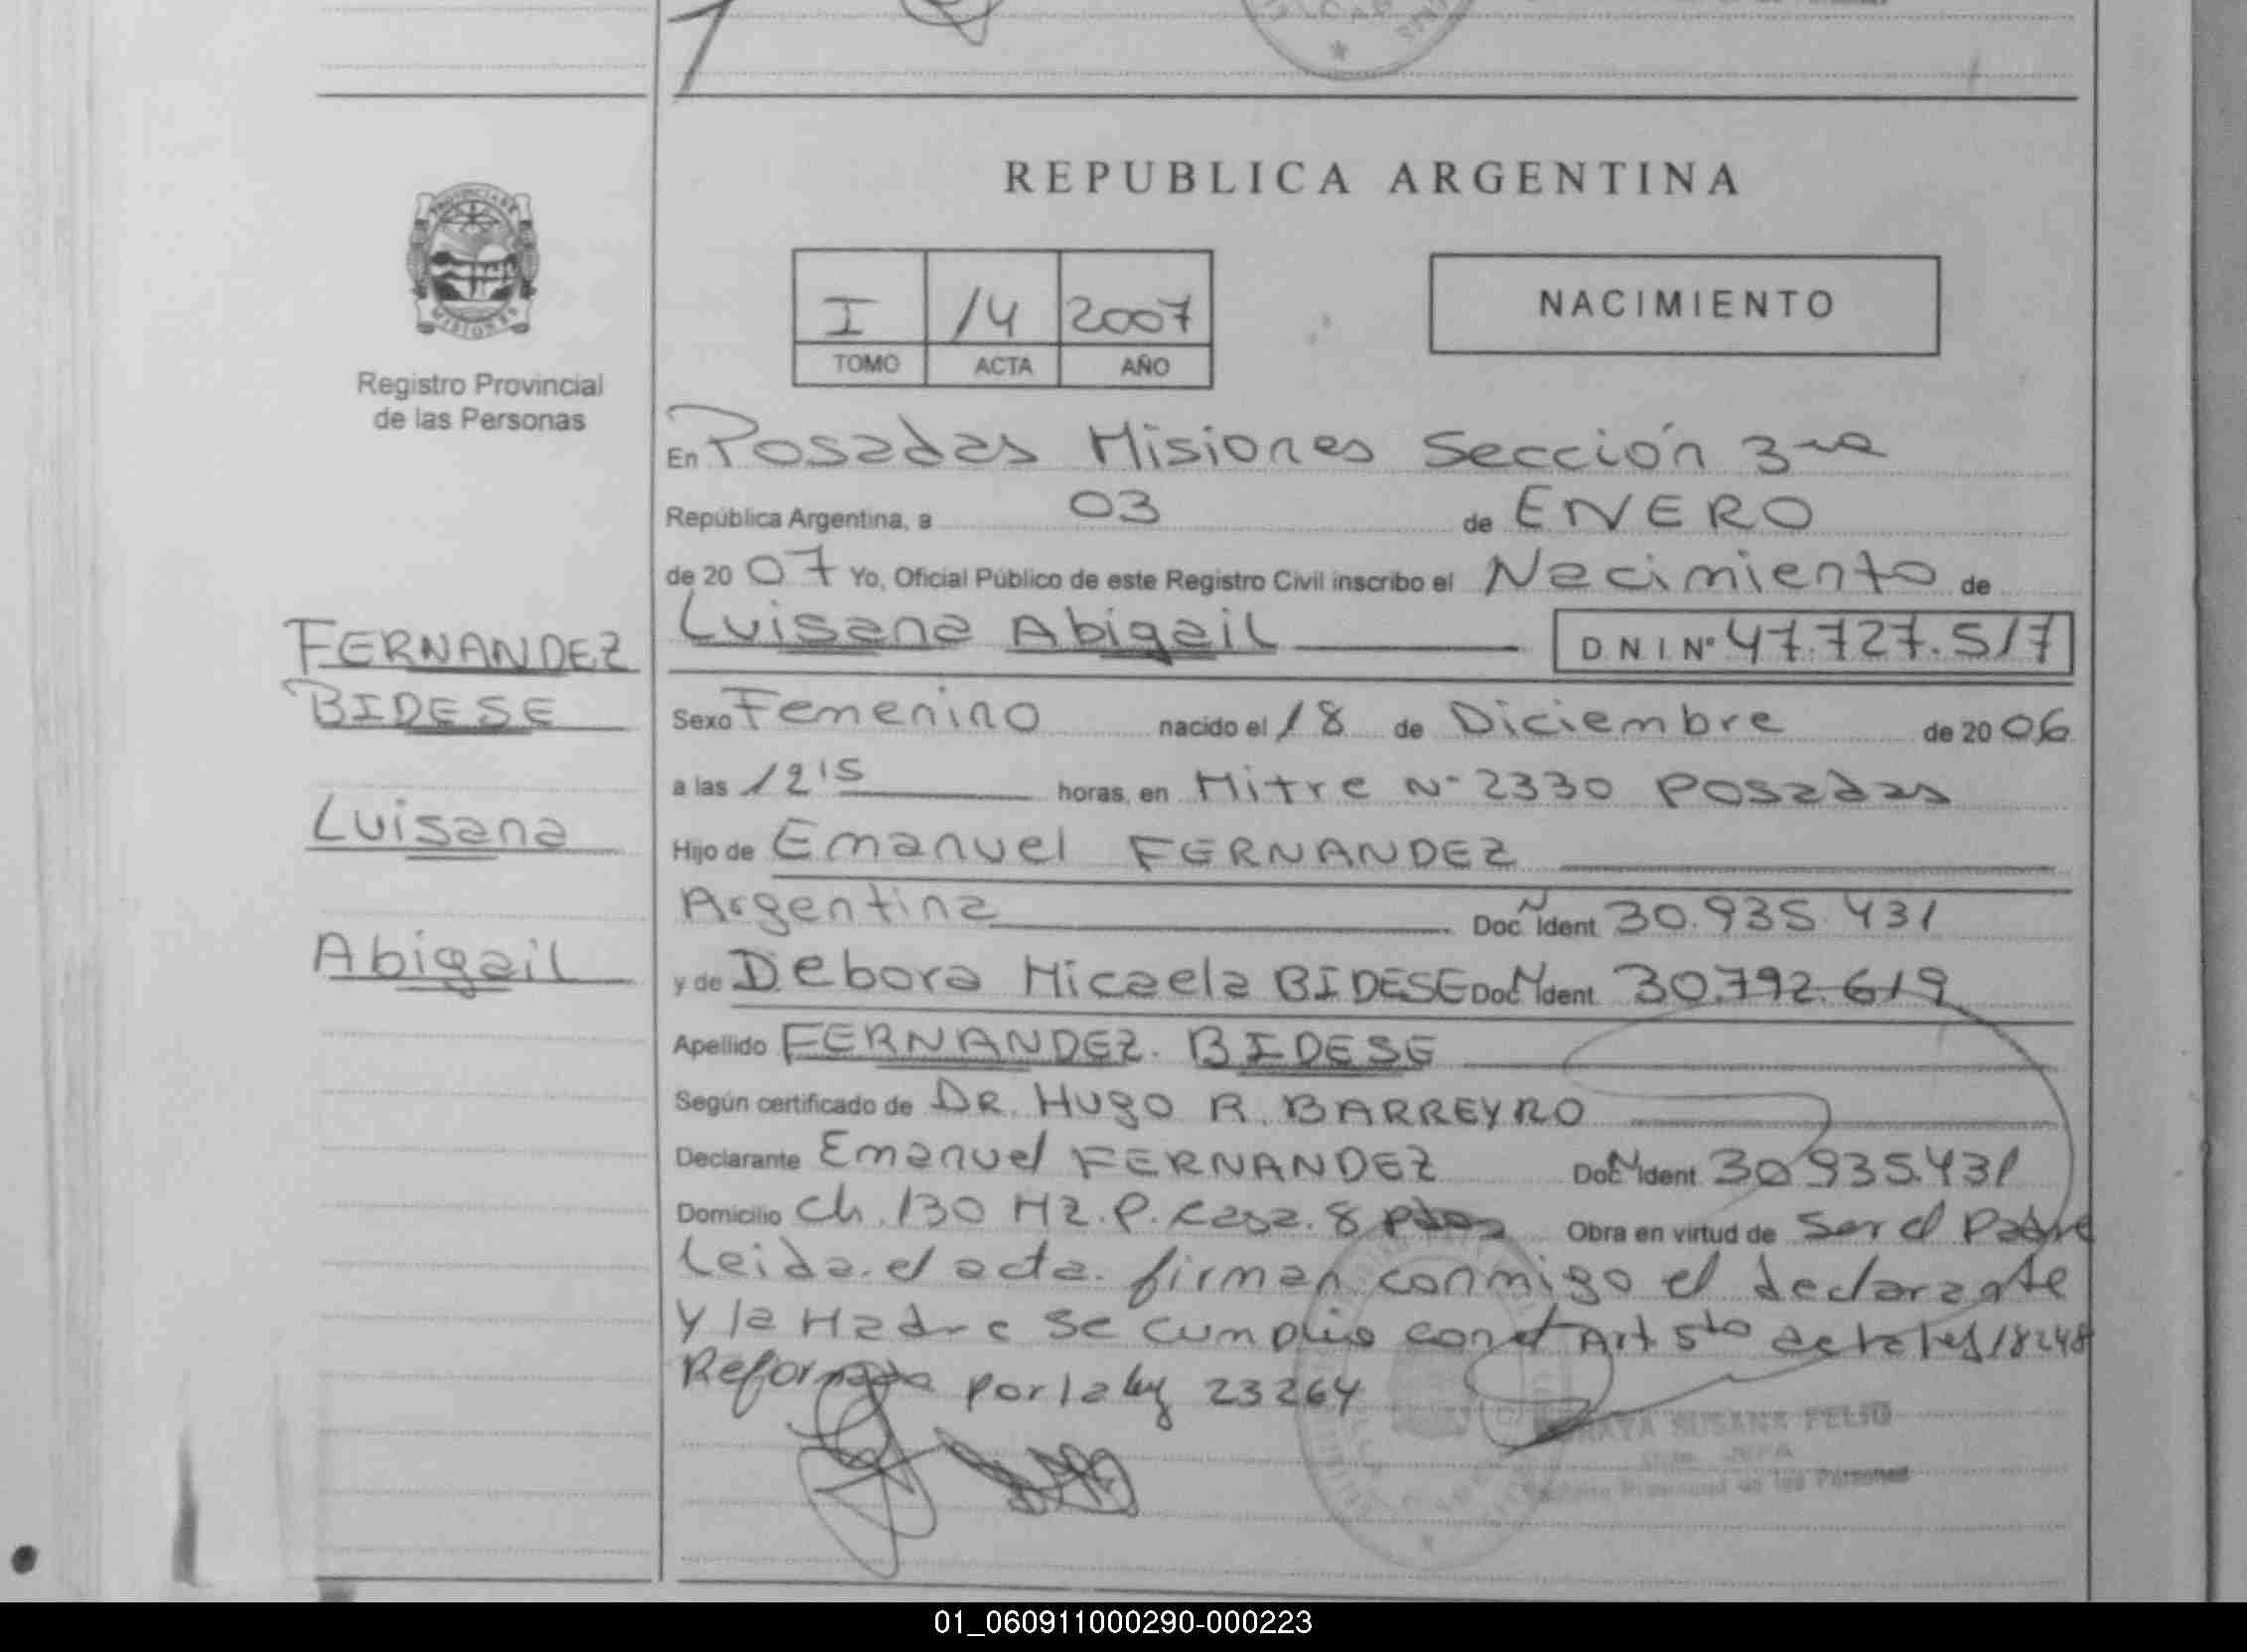 REPUBLICA ARGENTINA
PROVINCIA DE
MISIONES
Registro Provincial
de las Personas
I /4 2007
TOMO ACTA AÑO
NACIMIENTO
En Posadas Misiones Sección 3ra
República Argentina, a 03 de ENERO
de 20 07 Yo, Oficial Público de este Registro Civil inscribo el Nacimiento de
Luisana Abigail DNI Nº 47.727.517
FERNANDEZ
BIDESE
Luisana
Abigail
Sexo Femenino nacido el 18 de Diciembre de 20 06
a las 12 15 horas, en Mitre Nº 2330 Posadas
Hijo de Emanuel FERNANDEZ
Argentina Doc N Ident 30.935.431
y de Debora Micaela BIDESE Doc N Ident 30.792.619
Apellido FERNANDEZ BIDESE
Según certificado de DR. HUGO R. BARREYRO
Declarante Emanuel FERNANDEZ Doc N Ident 30.935.431
Domicilio Ch. 130 Mz. P. casa. 8 Pdas Obra en virtud de Ser el Padre
Leida el acta firman conmigo el declarante
y la Madre se cumplio con el Art 5to de la ley 18248
Reformada por la ley 23264
SUSANA FELIU
de las Personas
01_060911000290-000223